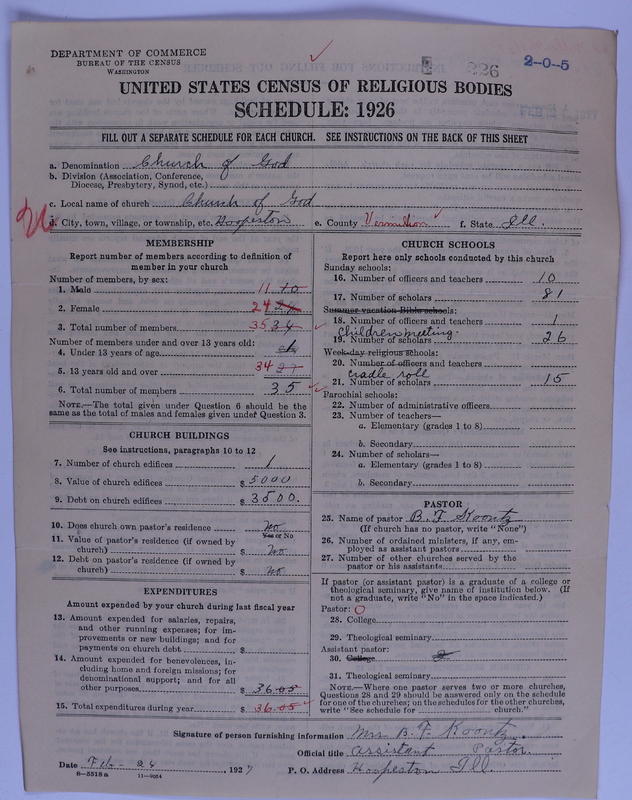 DEPARTMENT OF COMMERCE
BUREAU OF THE CENSUS
WASHINGTON
226
2-0-5
UNITED STATES CENSUS OF RELIGIOUS BODIES
SCHEDULE: 1926
FILL OUT A SEPARATE SCHEDULE FOR EACH CHURCH. SEE INSTRUCTIONS ON THE BACK OF THIS SHEET
a. Denomination Church of God
b. Division (Association, Conference,
Diocese, Presbytery, Synod, etc.)
c. Local name of church Church of God
d. City, town, village, or township, etc. Hoopeston e. County Vermillion f. State Ill.
MEMBERSHIP
Report number of members according to definition of
member in your church
Number of members, by sex:
1. Male 11 10
2. Female 24
3. Total number of members 35 34
Number of members under and over 13 years old:
4. Under 13 years of age
5. 13 years old and over 34
6. Total number of members 35
NOTE.—The total given under Question 6 should be the
same as the total of males and females given under Question 3.
CHURCH BUILDINGS
See instructions, paragraphs 10 to 12
7. Number of church edifices 1
8. Value of church edifices $ 5000
9. Debt on church edifices $ 3500.
10. Does church own pastor's residence No
Yes or No
11. Value of pastor's residence (if owned by
church) $ No
12. Debt on pastor's residence (if owned by
church) $ No
EXPENDITURES
Amount expended by your church during last fiscal year
13. Amount expended for salaries, repairs,
and other running expenses; for im-
provements or new buildings; and for
payments on church debt $
14. Amount expended for benevolences, in-
cluding home and foreign missions; for
denominational support; and for all
other purposes $ 36.05
15. Total expenditures during year $ 36.05
CHURCH SCHOOLS
Report here only schools conducted by this church
Sunday schools:
16. Number of officers and teachers 10
17. Number of scholars 81
Summer vacation Bible schools:
18. Number of officers and teachers 1
Children meeting.
19. Number of scholars 26
Week-day religious schools:
20. Number of officers and teachers
Cradle roll
21. Number of scholars 15
Parochial schools:
22. Number of administrative officers
23. Number of teachers—
a. Elementary (grades 1 to 8)
b. Secondary
24. Number of scholars—
a. Elementary (grades 1 to 8)
b. Secondary
PASTOR
25. Name of pastor B. F. Koontz
(If church has no pastor, write "None")
26. Number of ordained ministers, if any, em-
ployed as assistant pastors
27. Number of other churches served by the
pastor or his assistants
If pastor (or assistant pastor) is a graduate of a college or
theological seminary, give name of institution below. (If
not a graduate, write "No" in the space indicated.)
Pastor: O
28. College
29. Theological seminary
Assistant pastor:
30. College
31. Theological seminary
NOTE.—Where one pastor serves two or more churches,
Questions 28 and 29 should be answered only on the schedule
for one of the churches; on the schedules for the other churches,
write "See schedule for church."
Signature of person furnishing information Mrs B. F. Koontz.
Official title Assistant Pastor.
Date Feb- 26, 1927 P. O. Address Hoopeston Ill.
8—5518a 11—9054